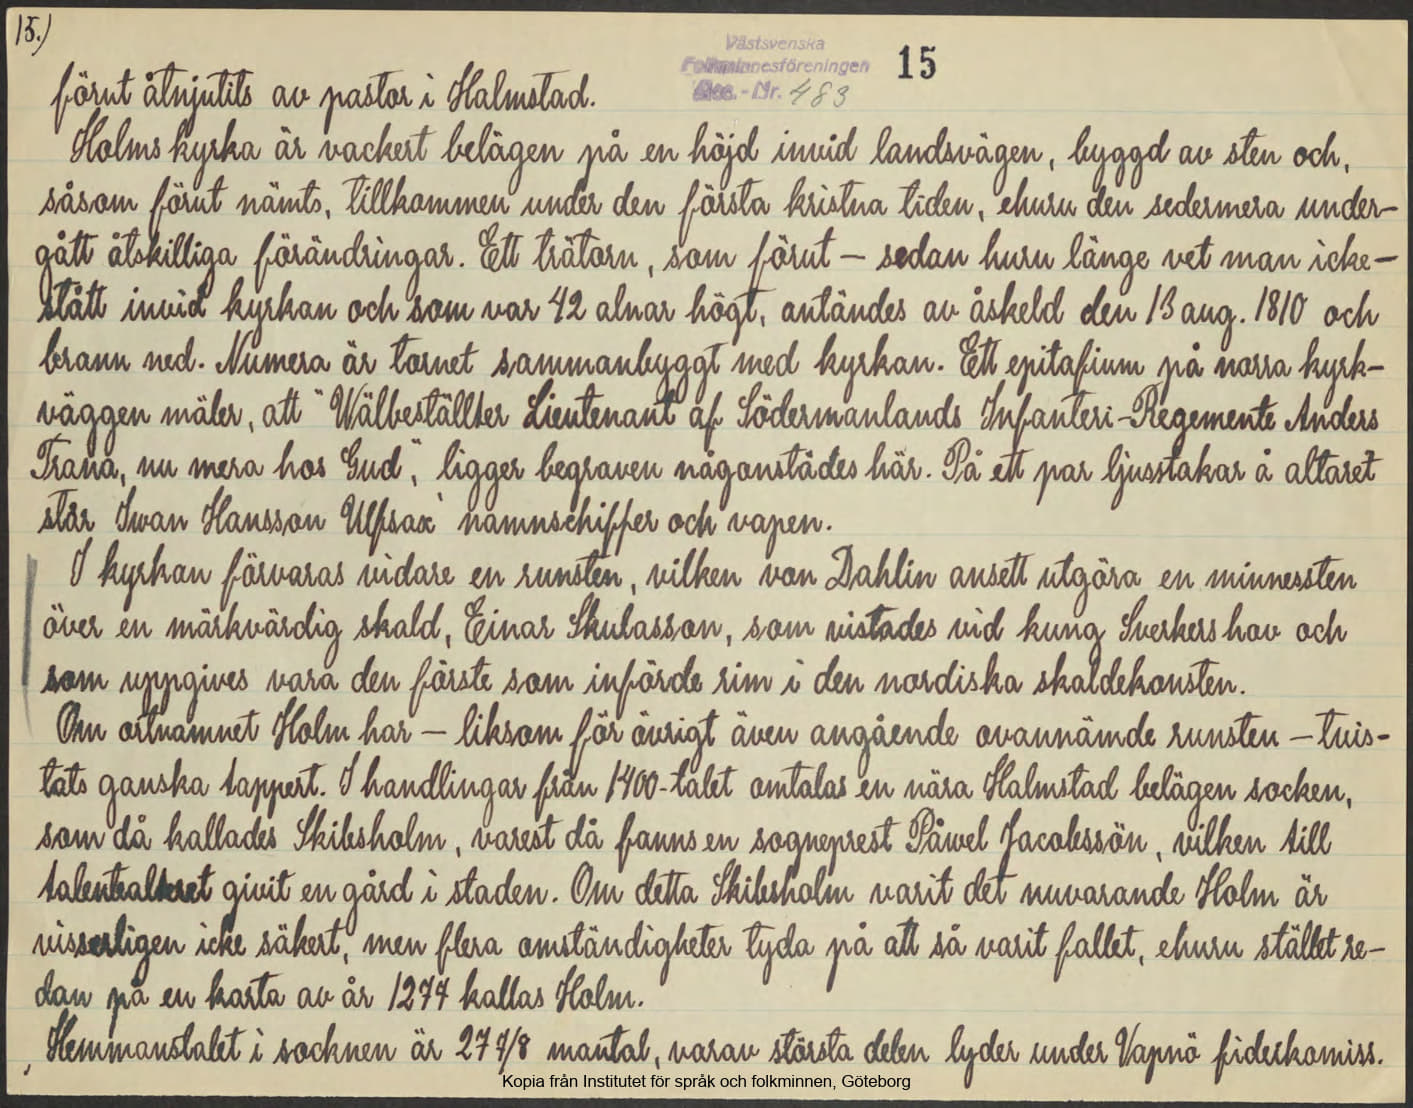 15.)
Västsvenska
Folkminnesföreningen
Acc. - Nr. 483
15
förut åtnjutits av pastor i Halmstad.
Holms kyrka är vackert belägen på en höjd invid landsvägen, byggd av sten och,
såsom förut nämts, tillkommen under den första kristna tiden, ehuru den sedermera under-
gått åtskilliga förändringar. Ett trätorn, som förut – sedan huru länge vet man icke –
stått invid kyrkan och som var 42 alnar högt, antändes av åskeld den 13 aug. 1810 och
brann ned. Numera är tornet sammanbyggt med kyrkan. Ett epitafium på norra kyrk-
väggen mäler, att "Wälbeställter Lieutenant af Södermanlands Infanteri-Regemente Anders
Trana, nu mera hos Gud", ligger begraven någonstädes här. På ett par ljusstakar å altaret
står Iwan Hansson Ulfsax' namnschiffer och vapen.
I kyrkan förvaras vidare en runsten, vilken von Dahlin ansett utgöra en minnessten
över en märkvärdig skald, Einar Skulasson, som vistades vid kung Sverkers hov och
som uppgives vara den förste som införde rim i den nordiska skaldekonsten.
Om ortnamnet Holm har – liksom för övrigt även angående ovannämde runsten – tvis-
tats ganska tappert. I handlingar från 1400-talet omtalas en nära Halmstad belägen socken,
som då kallades Skibsholm, varest då fanns en sogneprest Påwel Jacobssön, vilken till
givit en gård i staden. Om detta Skibsholm varit det nuvarande Holm är
visserligen icke säkert, men flera omständigheter tyda på att så varit fallet, ehuru stället re-
dan på en karta av år 1274 kallas Holm.
Hemmanstalet i socknen är 27 7/8 mantal, varav största delen lyder under Vapnö fideikomiss.
Kopia från Institutet för språk och folkminnen, Göteborg